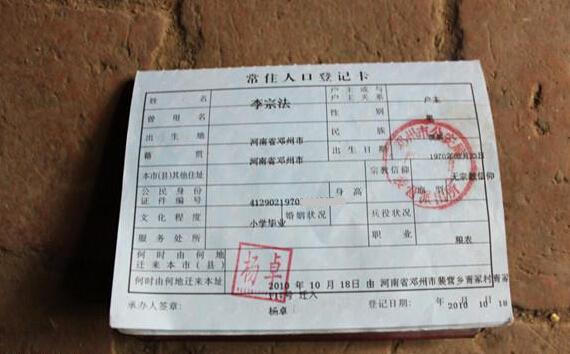 常住人口登记卡
姓 名 李宗法 户主或与户主关系 户主
曾用名 性别
出生地 河南省邓州市 民族
籍贯 河南省邓州市 出生日期
本市(县)其他住址 宗教信仰 无宗教信仰
公民身份证件编号 4129021970 身高
文化程度 小学毕业 婚姻状况 兵役状况
服务处所 职业 粮农
何时由何地迁来本市(县)
何时由何地迁来本址 2010 年 10 月 18日 由 河南省邓州市裴营乡
号 迁入
杨卓
承办人签章: 杨卓 登记日期: 年 月 日
2010 10 18